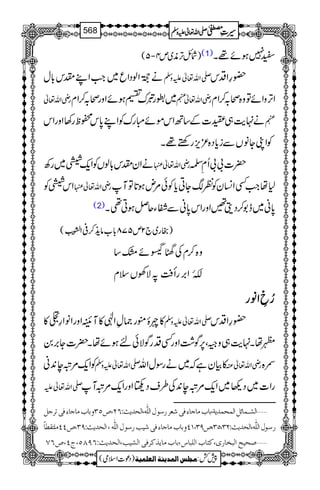 سیرتِ مصطفیٰ صلی اللہ تعالیٰ علیہ وسلم 568
سفید نہیں ہوئے تھے۔(1) (شمائل ترمذی ص۴-۵)
حضورِ اقدس صلی اللہ تعالیٰ علیہ وسلم نے حجۃ الوداع میں جب اپنے مقدس بال
اتروائے تو وہ صحابہ کرام رضی اللہ تعالیٰ عنہم میں بطور تبرک تقسیم ہوئے اور صحابہ کرام رضی اللہ تعالیٰ
عنہم نے نہایت ہی عقیدت کے ساتھ اس موئے مبارک کو اپنے پاس محفوظ رکھا اور اس
کو اپنی جانوں سے زیادہ عزیز رکھتے تھے۔
حضرت بی بی اُمِ سلمہ رضی اللہ تعالیٰ عنہا نے ان مقدس بالوں کو ایک شیشی میں رکھ
لیا تھا جب کسی انسان کو نظر لگ جاتی یا کوئی مرض ہوتا تو آپ رضی اللہ تعالیٰ عنہا اس شیشی کو
پانی میں ڈبو کر دیتی تھیں اور اس پانی سے شفا حاصل ہوتی تھی۔(2)
(بخاری ج۲ ص۸۷۵ باب مایذکر فی الشیب)
وہ کرم کی گھٹا گیسوئے مشک سا
لکۂ ابر رافت پہ لاکھوں سلام
رُخِ انور
حضورِ اقدس صلی اللہ تعالیٰ علیہ وسلم کا چہرۂ منور جمالِ الٰہی کا آئینہ اور انوارِ تجلی کا
مظہر تھا۔ نہایت ہی وجیہ، پُر گوشت اور کسی قدر گولائی لئے ہوئے تھا۔ حضرت جابر بن
سمرہ رضی اللہ تعالیٰ عنہ کا بیان ہے کہ میں نے رسول اللہ صلی اللہ تعالیٰ علیہ وسلم کو ایک مرتبہ چاندنی
رات میں دیکھا میں ایک مرتبہ چاند کی طرف دیکھتا اور ایک مرتبہ آپ صلی اللہ تعالیٰ علیہ
الشمائل المحمدیۃ،باب ماجاء فی شعر رسول اللّٰہ،الحدیث:۲۶،ص۳۵وباب ماجاء فی ترجل
رسول اللّٰہ،الحدیث:۳۱،۳۳،ص۳۹،۴۱وباب ماجاء فی شیب رسول اللّٰہ ، الحدیث:۳۹،ص۴۴ملتقطاً
صحیح البخاری،کتاب اللباس،باب مایذکرفی الشیب،الحدیث:۵۸۹۶،ج۴،ص۷۶
پیش کش: مجلس المدینۃ العلمیۃ (دعوتِ اسلامی)